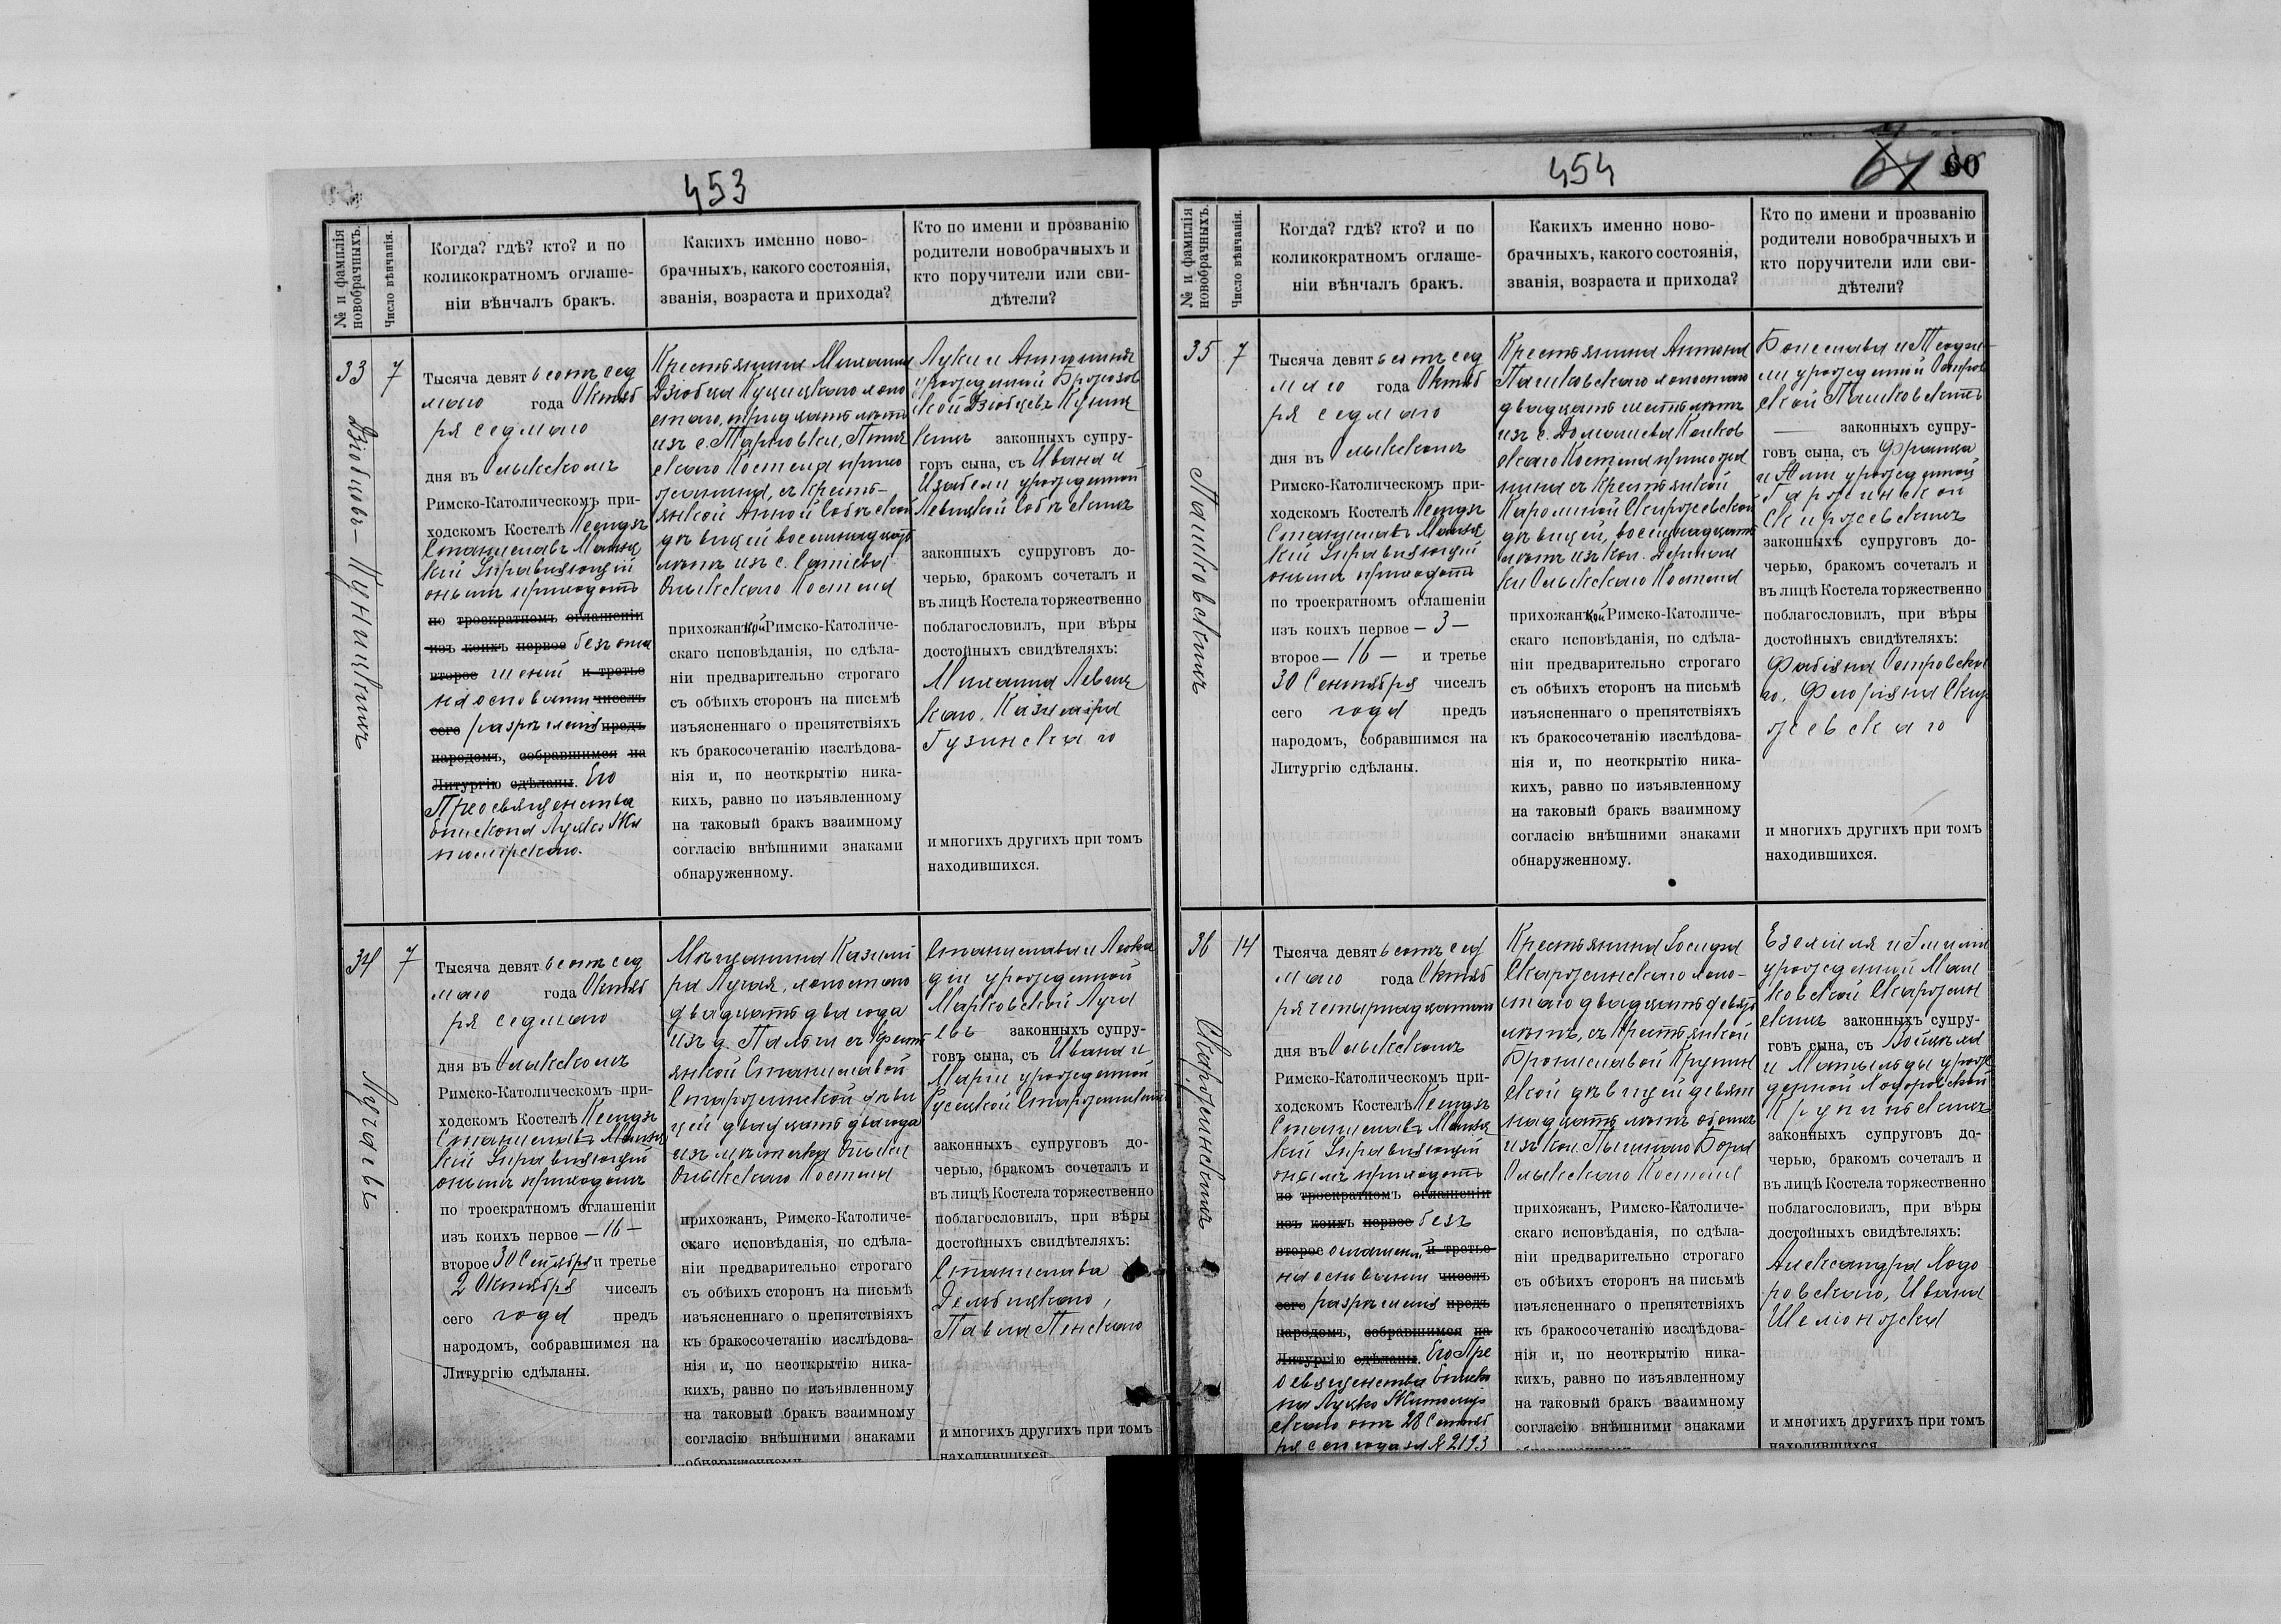 453
№ и фамилія
новобрачныхъ.
Число вѣнчанія.
Когда? гдѣ? кто? и по
коликократномъ оглаше-
ніи вѣнчалъ бракъ.
Каких­ъ именно ново-
брачныхъ, какого состоянія,
званія, возраста и прихода?
Кто по имени и прозванію
родители новобрачныхъ и
кто поручители или сви-
дѣтели?
33
7
Дзіобцовъ-Куницкихъ
Тысяча девятьсотъ сед
маго года Октяб
ря седмаго
дня въ Олыкскомъ
Римско-Католическомъ при-
ходскомъ Костелѣ Ксендзъ
Станиславъ
кій Управляющій
онымъ приходомъ
по троекратномъ оглашеніи
изъ коихъ первое безъ огла
второе шеній и третье
на основаніи чиселъ
сего разрѣшенія предъ
народомъ, собравшимся на
Литургію сдѣланы. Его
Преосвященства
Епископа Луцко Жи
томірскаго.
Крестьянина Михаила
Дзіобца Куницкаго холо
стаго, тридцать лѣтъ
изъ с.
скаго Костела прихо
жанина, съ Кресть-
янкой Анной Собѣской
дѣвицей восемнадцать
лѣтъ изъ с.
Олыкскаго Костела
прихожанкой Римско-Католиче-
скаго исповѣданія, по сдѣла-
ніи предварительно строгаго
съ обѣихъ сторонъ на письмѣ
изъясненнаго о препятствіяхъ
къ бракосочетанію изслѣдова-
нія и, по неоткрытію ника-
кихъ, равно по изъявленному
на таковый бракъ взаимному
согласію внѣшними знаками
обнаруженному.
Луки и Антонины
урожденной
Дзіобцевъ Куниц
кихъ законныхъ супру-
говъ сына, съ Ивана и
Изабели урожденной
Левицкой Собѣскихъ
законныхъ супруговъ до-
черью, бракомъ сочеталъ и
въ лицѣ Костела торжественно
поблагословилъ, при вѣры
достойныхъ свидѣтеляхъ:
Михаила Левиц
каго, Казиміра
Гузинскаго
и многихъ другихъ при томъ
находившихся.
34
7
Лугаевъ
Тысяча девятьсотъ сед
маго года Октяб
ря седмаго
дня въ Олыкскомъ
Римско-Католическомъ при-
ходскомъ Костелѣ Ксендзъ
Станиславъ
кій Управляющій
онымъ приходомъ
по троекратномъ оглашеніи
изъ коихъ первое —16—
второе 30 Сентября и третье
2 Октября чиселъ
сего года предъ
народомъ, собравшимся на
Литургію сдѣланы.
Мѣщанина Казимі
ра Лугая, холостаго
двадцать два года
изъ д. съ Крест
янкой Станиславой
Старжинской дѣви
цей двадцать два года
изъ мѣстечка Олыки
Олыкскаго Костела
прихожанъ, Римско-Католиче-
скаго исповѣданія, по сдѣла-
ніи предварительно строгаго
съ обѣихъ сторонъ на письмѣ
изъясненнаго о препятствіяхъ
къ бракосочетанію изслѣдова-
нія и, по неоткрытію ника-
кихъ, равно по изъявленному
на таковый бракъ взаимному
согласію внѣшними знаками
обнаруженному.
Станислава и Леока
діи урожденной
Марковской Луга
евъ законныхъ супру-
говъ сына, съ Ивана и
Маріи урожденной
Русецкой Старжинскихъ
законныхъ супруговъ до-
черью, бракомъ сочеталъ и
въ лицѣ Костела торжественно
поблагословилъ, при вѣры
достойныхъ свидѣтеляхъ:
Станислава
Дембицкаго,
Павла Пенскаго
и многихъ другихъ при томъ
находившихся
454
60
№ и фамилія
новобрачныхъ.
Число вѣнчанія.
Когда? гдѣ? кто? и по
коликократномъ оглаше-
ніи вѣнчалъ бракъ.
Какихъ именно ново-
брачныхъ, какого состоянія,
званія, возраста и прихода?
Кто по имени и прозванію
родители новобрачныхъ и
кто поручители или сви-
дѣтели?
35
7
Пашковскихъ
Тысяча девятьсотъ сед
маго года Октяб
ря седмаго
дня въ Олыкскомъ
Римско-Католическомъ при-
ходскомъ Костелѣ Ксендзъ
Станиславъ
кій Управляющій
онымъ приходомъ
по троекратномъ оглашеніи
изъ коихъ первое —3—
второе —16— и третье
30 Сентября чиселъ
сего года предъ
народомъ, собравшимся на
Литургію сдѣланы.
Крестьянина Антона
Пашковскаго холостаго
двадцать шесть лѣтъ
изъ с. Домашева
скаго Костела прихожа
нина съ Крестьянкой
Каролиной Скиржевской
дѣвицей, восемнадцать
лѣтъ изъ кол. Дерман
ки Олыкскаго Костела
прихожанкой Римско-Католиче-
скаго исповѣданія, по сдѣла-
ніи предварительно строгаго
съ обѣихъ сторонъ на письмѣ
изъясненнаго о препятствіяхъ
къ бракосочетанію изслѣдова-
нія и, по неоткрытію ника-
кихъ, равно по изъявленному
на таковый бракъ взаимному
согласію внѣшними знаками
обнаруженному.
Болеслава и Теофи-
ли урожденной Остров
ской Пашковскихъ
законныхъ супру-
говъ сына, съ Франца
и урожденной
Гаржинской
Скиржевскихъ
законныхъ супруговъ до-
черью, бракомъ сочеталъ и
въ лицѣ Костела торжественно
поблагословилъ, при вѣры
достойныхъ свидѣтеляхъ:
Фабіяна Островска
го, Флоріяна Скир
жевскаго
и многихъ другихъ при томъ
находившихся.
36
14
Скаржинскихъ
Тысяча девятьсотъ сед
маго года Октяб
ря четырнадцатаго
дня въ Олыкскомъ
Римско-Католическомъ при-
ходскомъ Костелѣ Ксендзъ
Станиславъ
кій Управляющій
онымъ приходомъ
по троекратномъ оглашеніи
изъ коихъ первое безъ
второе оглашеній и третье
на основаніи чиселъ
сего разрѣшенія предъ
народомъ, собравшимся на
Литургію сдѣланы. Его Пре
освященства Еписко
па Луцко Житомір
скаго отъ 28 Сентяб
ря сего года за № 2193
Крестьянина Іосифа
Скаржинскаго холо-
стаго двадцать девять
лѣтъ, съ Крестьянкой
Брониславой Крупин
ской дѣвицей девят
надцать лѣтъ обоихъ
изъ кол. Пышнаго Бора
Олыкскаго Костела
прихожанъ, Римско-Католиче-
скаго исповѣданія, по сдѣла-
ніи предварительно строгаго
съ обѣихъ сторонъ на письмѣ
изъясненнаго о препятствіяхъ
къ бракосочетанію изслѣдова-
нія и, по неоткрытію ника-
кихъ, равно по изъявленному
на таковый бракъ взаимному
согласію внѣшними знаками
и Эмиліи
урожденной Мали
ковской Скаржин
скихъ законныхъ супру-
говъ сына, съ Войцѣха
и Матильды урож
денной Ходоровской
Крупинскихъ
законныхъ супруговъ до-
черью, бракомъ сочеталъ и
въ лицѣ Костела торжественно
поблагословилъ, при вѣры
достойныхъ свидѣтеляхъ:
Александра Ходо
ровскаго, Ивана
Шеліонжка
и многихъ другихъ при томъ
находившихся